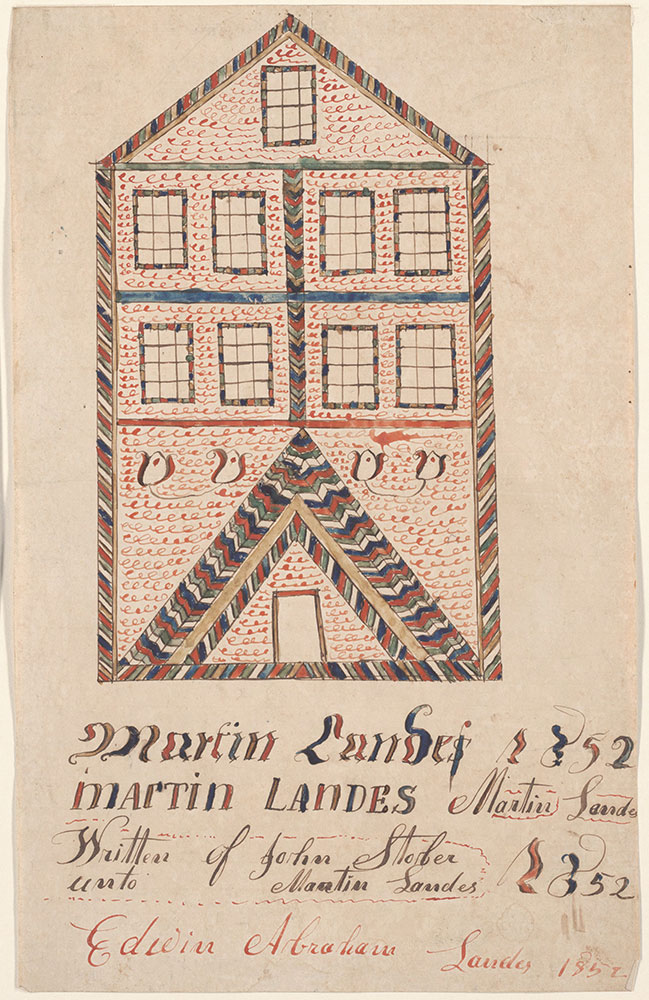 Martin Landes 1852
Martin Landes Martin Lande
Written of John Stober
unto Martin Landes 1852
Edwin Abraham Landes 1852